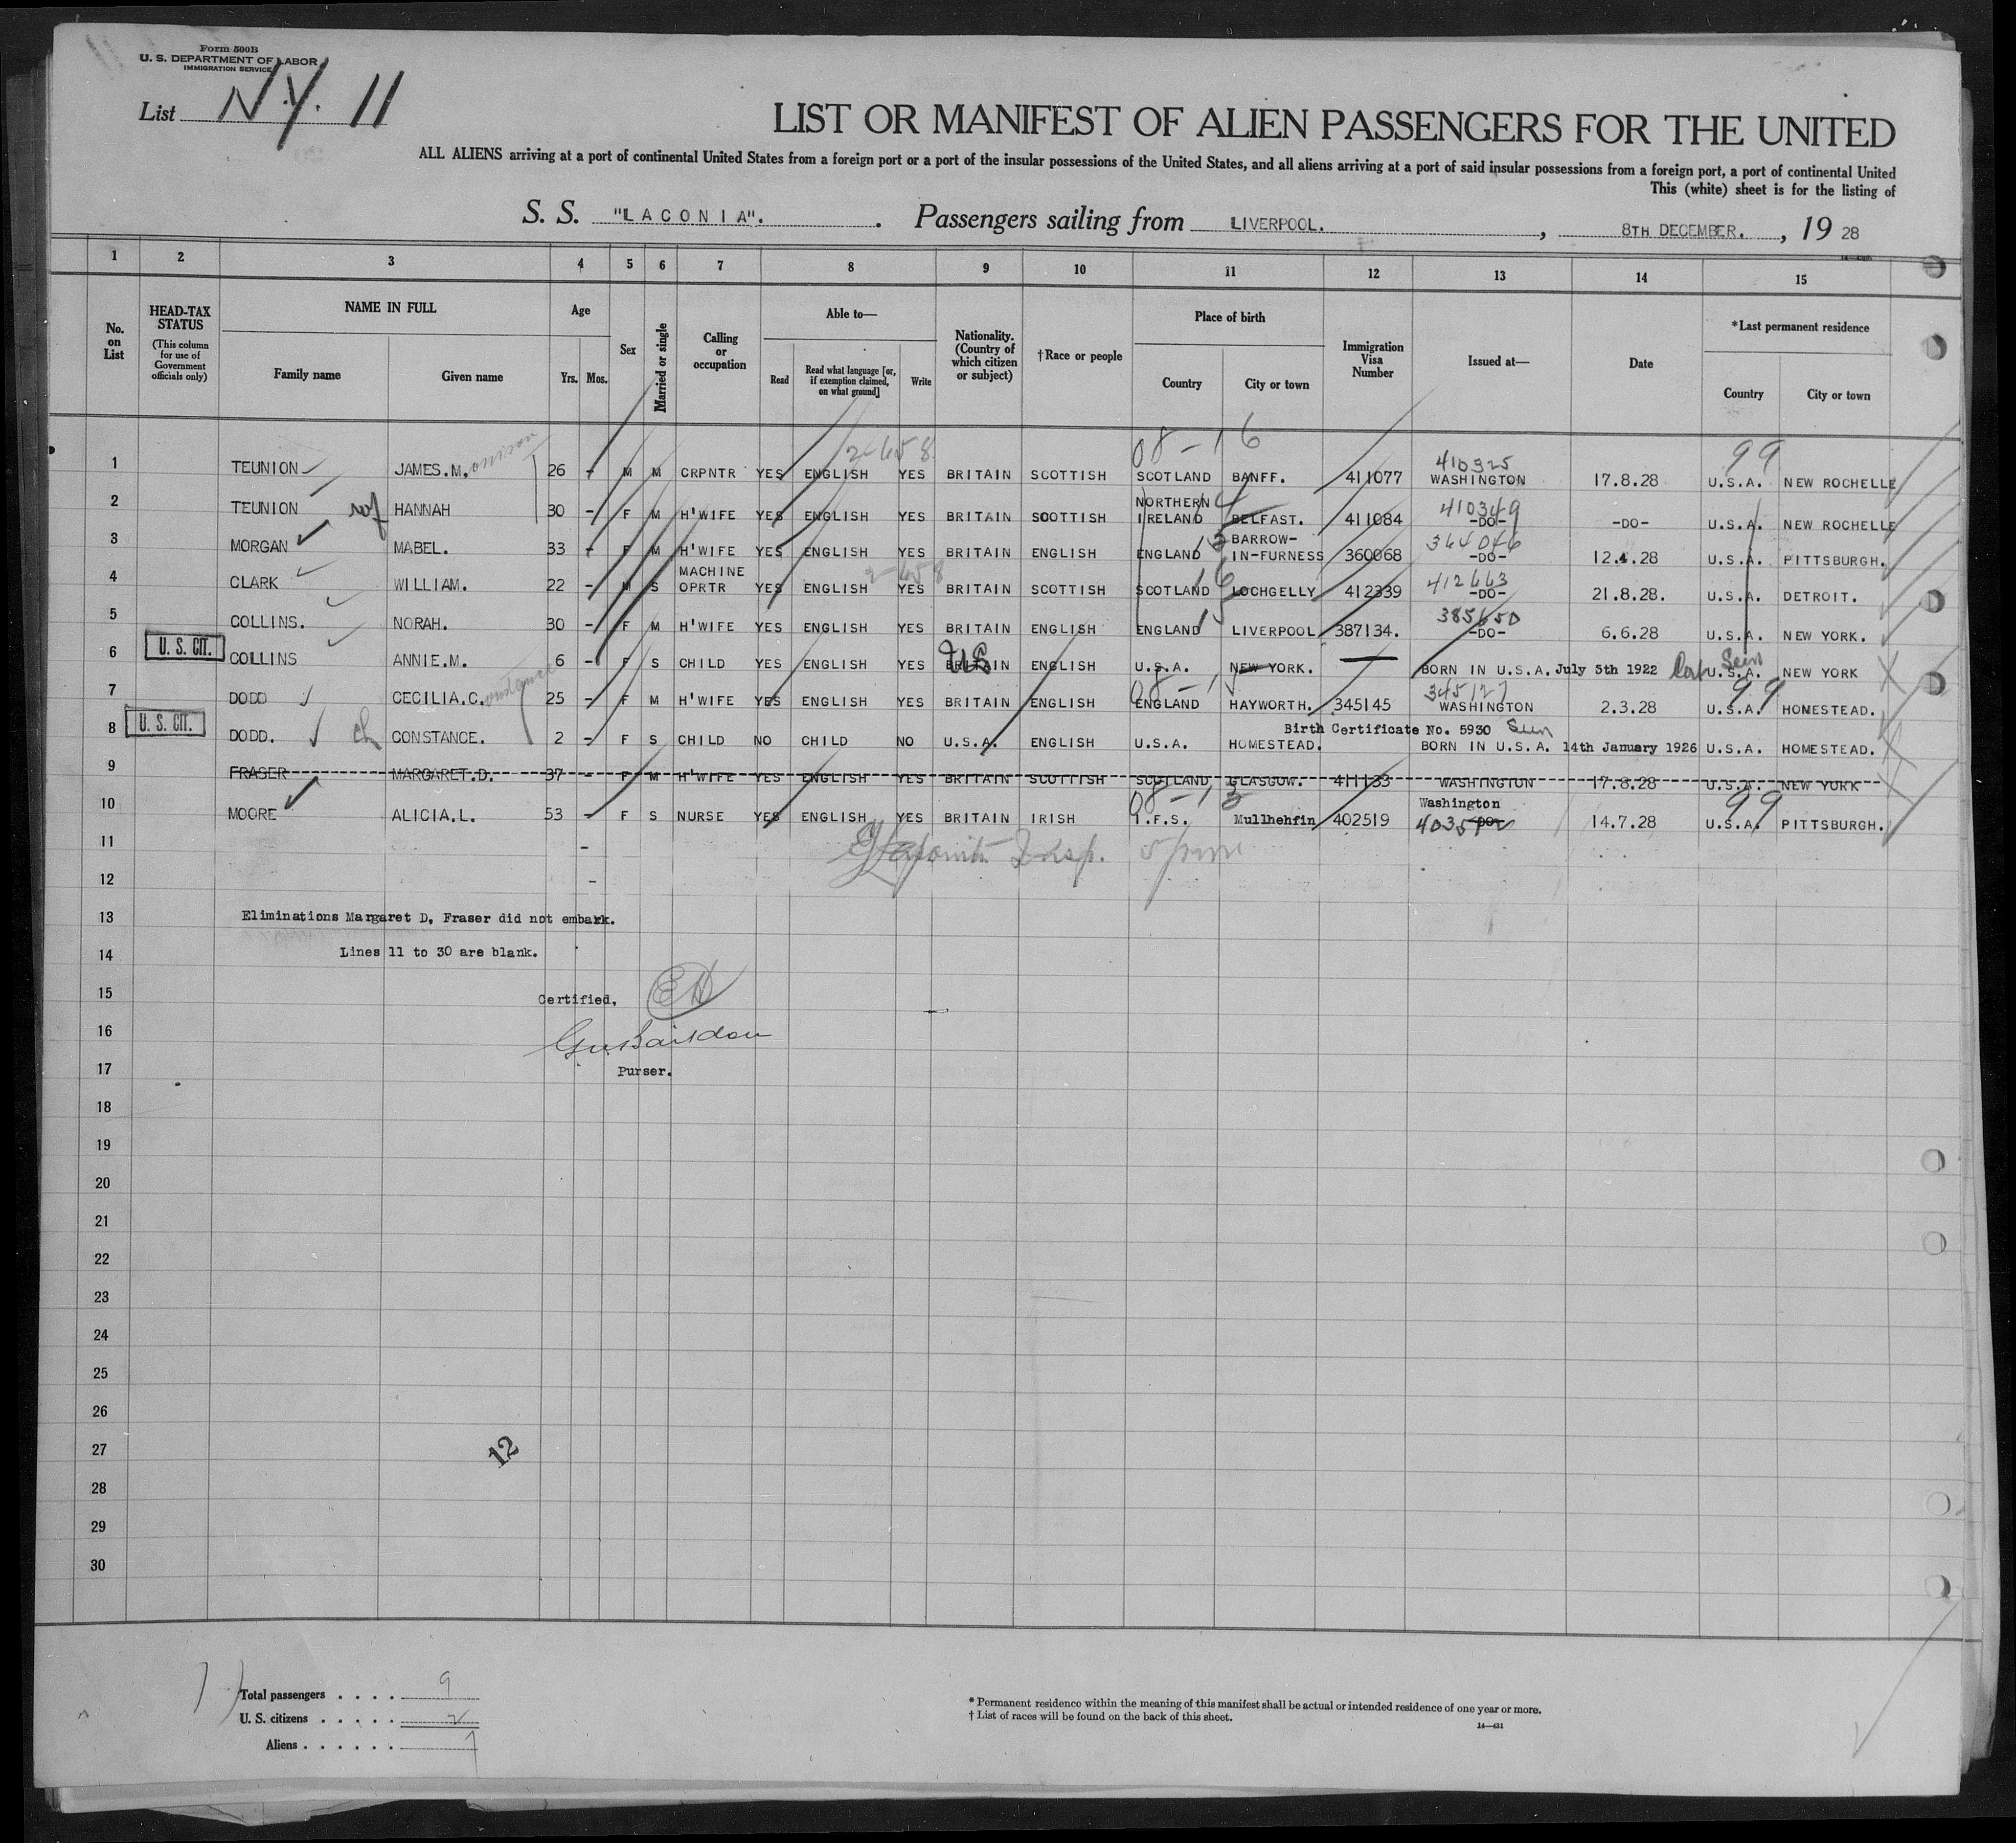 Form 500B
U. S. DEPARTMENT OF LABOR
IMMIGRATION SERVICE
List N.Y. 11
LIST OR MANIFEST OF ALIEN PASSENGERS FOR THE UNITED
ALL ALIENS arriving at a port of continental United States from a foreign port or a port of the insular possessions of the United States, and all aliens arriving at a port of said insular possessions from a foreign port, a port of continental United
This (white) sheet is for the listing of
S. S. "LACONIA". . Passengers sailing from LIVERPOOL. , 8TH DECEMBER. , 19 28
1 2 3 4 5 6 7 8 9 10 11 12 13 14 15
No. on List
HEAD-TAX STATUS
(This column for use of Government officials only)
NAME IN FULL
Family name Given name
Age
Yrs. Mos.
Sex
Married or single
Calling or occupation
Able to—
Read
Read what language [or, if exemption claimed, on what ground]
Write
Nationality. (Country of which citizen or subject)
†Race or people
Place of birth
Country City or town
Immigration Visa Number
Issued at—
Date
*Last permanent residence
Country City or town
2-658 08-16 410325 99
1 TEUNION JAMES.M. 26 - M M CRPNTR YES ENGLISH YES BRITAIN SCOTTISH SCOTLAND BANFF. 411077 WASHINGTON 17.8.28 U.S.A. NEW ROCHELLE
2 TEUNION wf HANNAH 30 - F M H'WIFE YES ENGLISH YES BRITAIN SCOTTISH NORTHERN IRELAND 4 BELFAST. 411084 410349 -DO- -DO- U.S.A. NEW ROCHELLE
3 MORGAN MABEL. 33 - F M H'WIFE YES ENGLISH YES BRITAIN ENGLISH ENGLAND BARROW-IN-FURNESS 360068 364046 -DO- 12.4.28 U.S.A. PITTSBURGH.
2-658
4 CLARK WILLIAM. 22 - M S MACHINE OPRTR YES ENGLISH YES BRITAIN SCOTTISH SCOTLAND 16 LOCHGELLY 412339 412663 -DO- 21.8.28. U.S.A. DETROIT.
5 COLLINS. NORAH. 30 - F M H'WIFE YES ENGLISH YES BRITAIN ENGLISH ENGLAND LIVERPOOL 387134. 385650 -DO- 6.6.28 U.S.A. NEW YORK.
6 U. S. CIT. COLLINS ANNIE.M. 6 - F S CHILD YES ENGLISH YES BRITAIN US ENGLISH U.S.A. NEW YORK. BORN IN U.S.A. July 5th 1922 Seen U.S.A. NEW YORK
7 DODD CECILIA.C. 25 - F M H'WIFE YES ENGLISH YES BRITAIN ENGLISH ENGLAND HAYWORTH. 345145 345127 WASHINGTON 2.3.28 U.S.A. 99 HOMESTEAD.
Birth Certificate No. 5930 Seen
8 U. S. CIT. DODD. ch CONSTANCE. 2 - F S CHILD NO CHILD NO U.S.A. ENGLISH U.S.A. HOMESTEAD. BORN IN U.S.A. 14th January 1926 U.S.A. HOMESTEAD.
9 FRASER MARGARET.D. 37 - F M H'WIFE YES ENGLISH YES BRITAIN SCOTTISH SCOTLAND GLASGOW. 411133 WASHINGTON 17.8.28 U.S.A. NEW YORK
08-13 Washington 99
10 MOORE ALICIA.L. 53 - F S NURSE YES ENGLISH YES BRITAIN IRISH I.F.S. Mullhehfin 402519 -DO- 14.7.28 U.S.A. PITTSBURGH.
11 - Insp.
12 -
13 Eliminations Margaret D, Fraser did not embark.
14 Lines 11 to 30 are blank.
15 Certified, EH
16
17 Purser.
18
19
20
21
22
23
24
25
26
27 12
28
29
30
Total passengers . . . . 9
U. S. citizens . . . . . 2
Aliens . . . . . . 7
* Permanent residence within the meaning of this manifest shall be actual or intended residence of one year or more.
† List of races will be found on the back of this sheet.
14—431